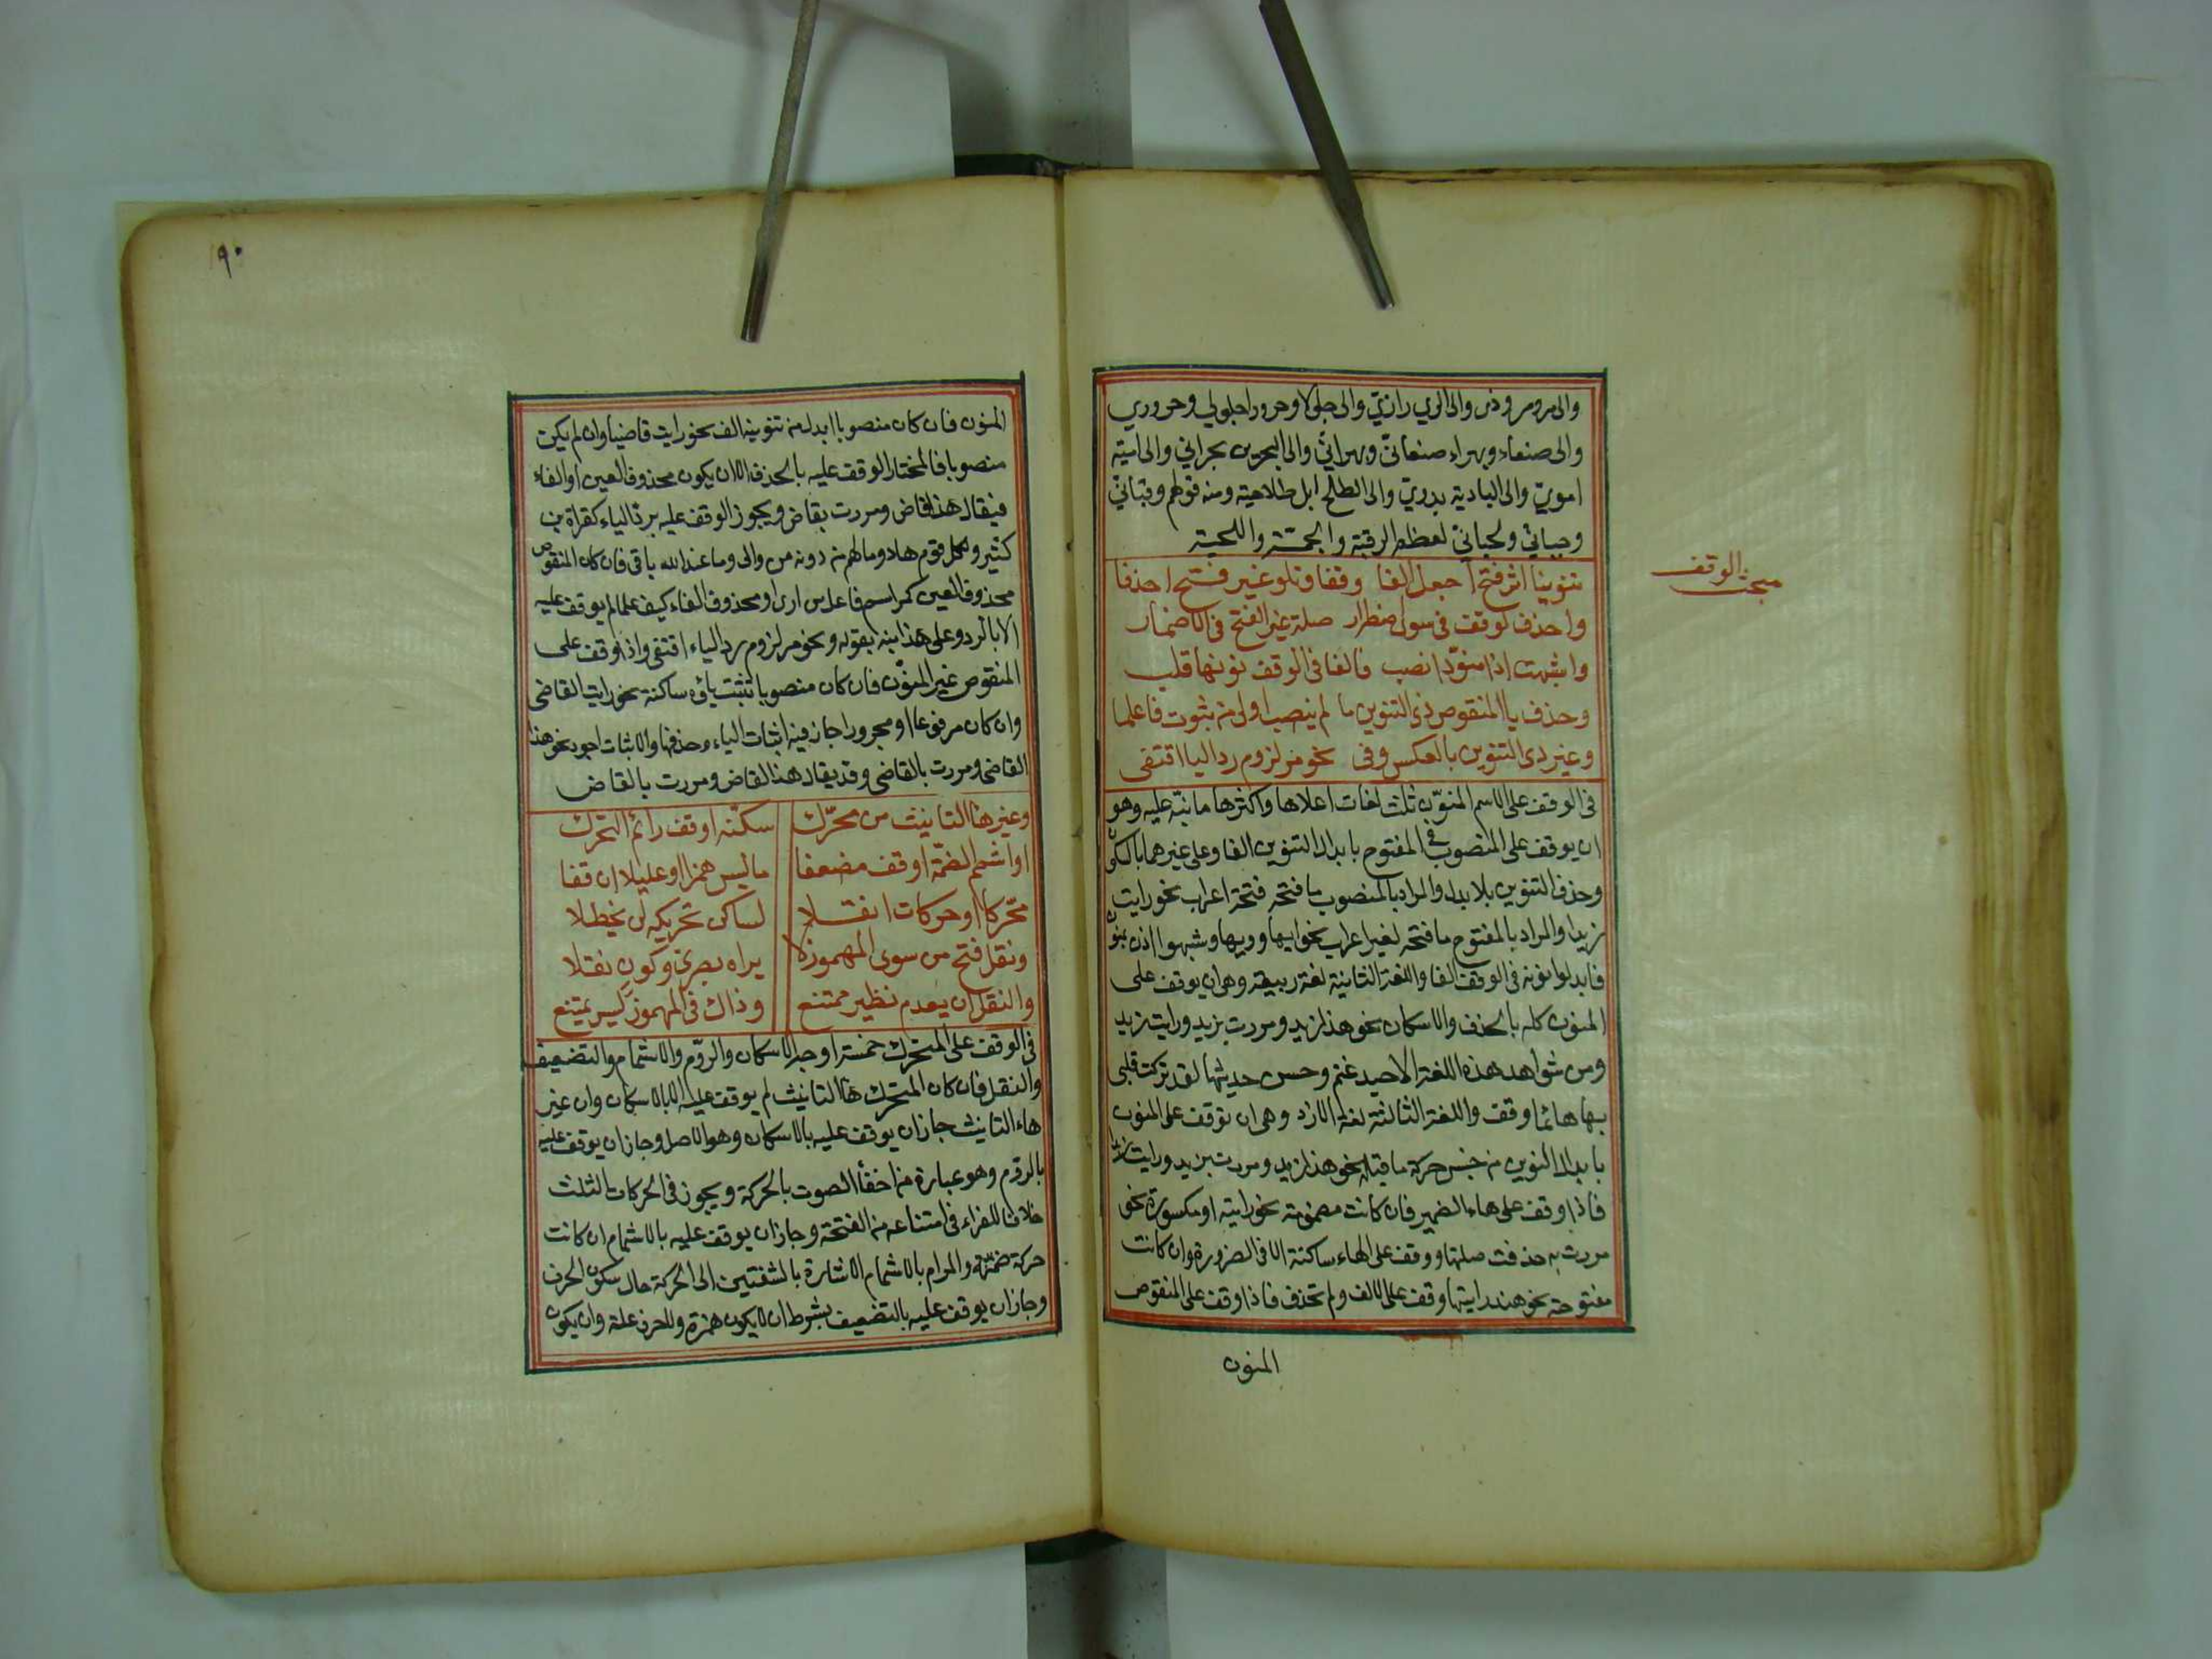 والى مرو مروذى والى الري رازيّ والى جلولا وحرورا جلولي وحروري
والى صنعاء وبهراء صنعانىّ وبهرانيّ والى البحرين بحراني والى امية
امويّ والى البادية بدويّ والى الطلح ابل طلاحية ومنه قولهم رقبانيّ
وجمانيّ ولحيانيّ لعظيم الرقبة والجمّة واللحية
مبحث الوقف
تنوينا اثر فتح اجعل الفا وقفا وتلو غير فتح احذفا
واحذف لوقف فى سوى اضطرار صلة غير الفتح فى الاضمار
واشبهت اذا منوّنا نصب فالفا فى الوقف نونها قلب
وحذف يا المنقوص ذى التنوين ما لم ينصب اولى من ثبوت فاعلما
وغير ذى التنوين بالعكس وفى نحو مر لزوم رد اليا اقتفى
فى الوقف على الاسم المنوّن ثلث لغات اعلاها واكثرها ما نبّه عليه وهو
ان يوقف على المنصوب والمفتوح بابدال التنوين الفا وعلى غيرهما بالسكون
وحذف التنوين بلا بدل والمراد بالمنصوب ما فتحه فتحة اعراب نحو رايت
زيدا والمراد بالمفتوح ما فتحه لغير اعراب نحو ايها وويها وشبهوا اذن بمنون
فابدلوا نونه فى الوقف الفا واللغة الثانية لغة ربيعة وهى ان يوقف على
المنون كله بالحذف والاسكان نحو هذا زيد ومررت بزيد ورايت زيد
ومن شواهد هذه اللغة الا حبذ غنم وحسن حديثها لقد تركت قلبى
بها هائما وقف واللغة الثالثة لغة الازد وهى ان توقف على المنون
بابدال التنوين من جنس حركة ما قبله نحو هذا زيد ومررت بزيد ورايت زيدا
فاذا وقف على هاء الضمير فان كانت مضمومة نحو رايته او مكسورة نحو
مررت به حذفت صلتها ووقف على الهاء ساكنة الا فى الضرورة وان كانت
مفتوحة نحو هند رايتها وقف على الالف ولم تحذف فاذا وقف على المنقوص
المنون
١٩٠
المنون فان كان منصوبا ابدل من تنوينه الف نحو رايت قاضيا وان لم يكن
منصوبا فالمختار الوقف عليه بالحذف الا ان يكون محذوف العين او الفاء
فيقال هذا قاض ومررت بقاض ويجوز الوقف عليه برد الياء كقراة بن
كثير ولكل قوم هاد وما لهم من دونه من والى وما عند الله باقى فان كان المنقوص
محذوف العين كمر اسم فاعل من ارى او محذوف الفاء كيف علما لم يوقف عليه
الا بالرد وعلى هذا نبه بقوله ونحو مر لزوم رد الياء اقتفى واذا وقف على
المنقوص غير المنوّن فان كان منصوبا تثبت ياؤه ساكنة نحو رايت القاضى
وان كان مرفوعا او مجرورا جاز فيه اثبات الياء وحذفها والاثبات اجود نحو هذا
القاضى ومررت بالقاضى وقد يقال هذا القاض ومررت بالقاض
وغير ها التانيث من محرّك سكّنه او قف رائم التحرّك
او اشمم الضمّة او قف مضعفا ما ليس همزا او عليلا ان قفا
محّركا او حركات انقلا لساكن تحريكه لن يخطلا
ونقل فتح من سوى المهموز لا يراه بصرىّ وكوفٍ نقلا
والنقل ان يعدم نظير ممتنع وذاك فى المهموز ليس يمتنع
فى الوقف على المتحرك خمسة اوجه الاسكان والرّوم والاشمام والتضعيف
والنقل فان كان المتحرك هاء التانيث لم يوقف عليه الا بالاسكان وان غير
هاء التانيث جاز ان يوقف عليه بالاسكان وهو الاصل وجاز ان يوقف عليه
بالروم وهو عبارة من اخفأ الصوت بالحركة ويجوز فى الحركات الثلث
خلافا للفراء فى امتناعه من الفتحة وجاز ان يوقف عليه بالاشمام ان كانت
حركة ضمّة والمرام بالاشمام الاشارة بالشفتين الى الحركة حال سكون الحرف
وجاز ان يوقف عليه بالتضعيف بشرط ان لا يكون همزة ولا حرف علة وان يكون